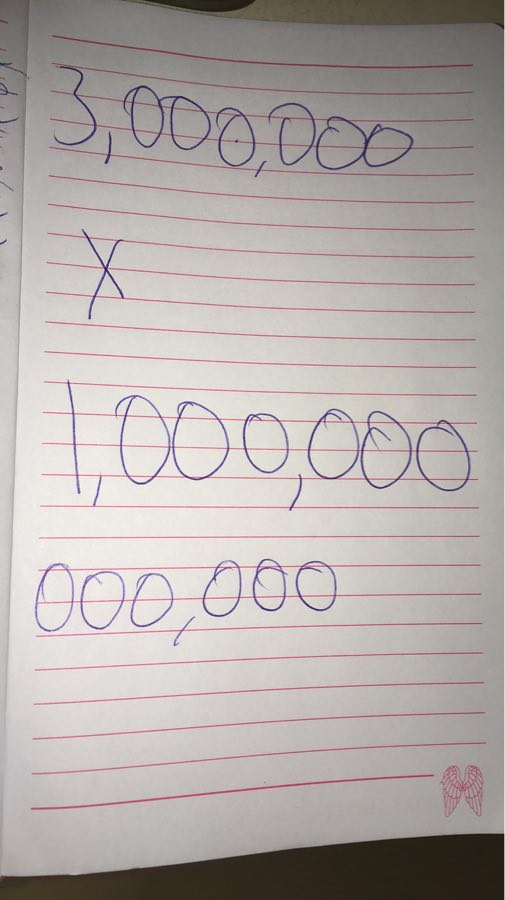 3,000,000
X
1,000,000
000,000